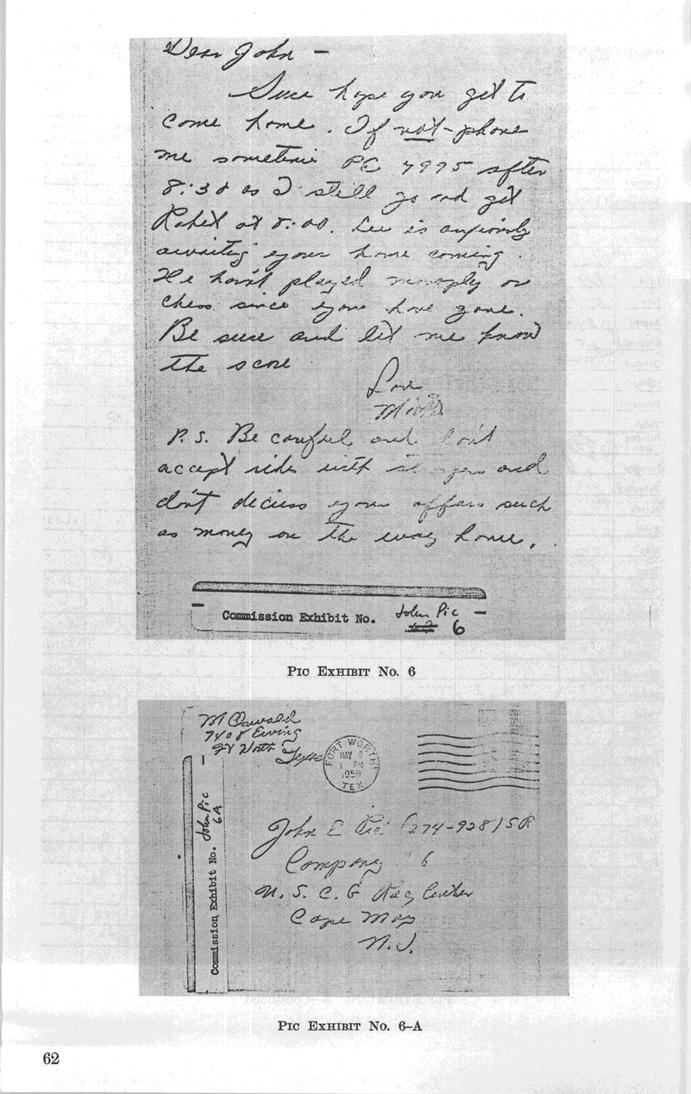 Dear John –
Sure hope you get to
come home. If not – phone
me sometime PE 7995 after
8:30 as I still go and get
Robert at 8:00. Lee is anxiously
awaiting your home coming.
He hasn't played monoply or
chess since you have gone.
Be sure and let me know
the score
Love
P.S. Be careful and don't
accept rides with strangers and
don't discuss your affairs such
as money on the way home.
Commission Exhibit No. John Pic
6
PIC EXHIBIT No. 6
M Oswald
7408 Ewing
Ft Worth Texas
FORT WORTH
MAY
PM
1950
TEX.
Commission Exhibit No. John Pic
6A
John E Pic (274-928) SR
Company 6
U. S. C. G Rec Center
Cape May
N.J.
PIC EXHIBIT No. 6–A
62